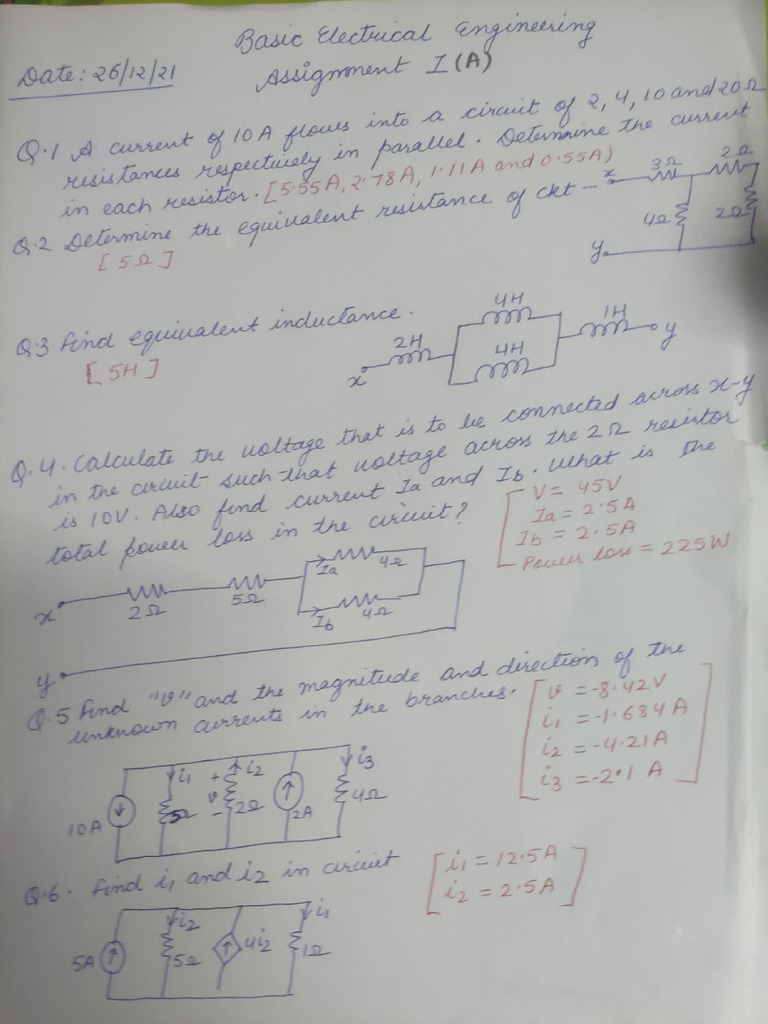 Basic Electrical Engineering
Date: 26/12/21
Assignment I (A)
Q.1 A current of 10A flows into a circuit of 2, 4, 10 and 20Ω
resistances respectively in parallel. Determine the current
in each resistor. [5.55A, 2.78A, 1.11A and 0.55A)
Q.2 Determine the equivalent resistance of ckt –
[5Ω]
x 3Ω 2Ω
4Ω 2Ω
y
Q.3 Find equivalent inductance.
[5H]
4H
2H 1H
x 4H y
Q.4. Calculate the voltage that is to be connected across x-y
in the circuit such that voltage across the 2Ω resistor
is 10V. Also find current Ia and Ib. What is the
total power loss in the circuit?
V = 45V
Ia = 2.5A
Ib = 2.5A
Power loss = 225W
x 2Ω 5Ω Ia 4Ω
Ib 4Ω
y
Q.5 Find "v" and the magnitude and direction of the
unknown currents in the branches.
[v = -8.42V
i1 = -1.684A
i2 = -4.21A
i3 = -2.1 A]
i1 + i2 i3
10A 5Ω v 2Ω 2A 4Ω
-
Q.6. Find i1 and i2 in circuit
[i1 = 12.5A
i2 = 2.5A]
i2 i1
5A 5Ω 4i2 1Ω